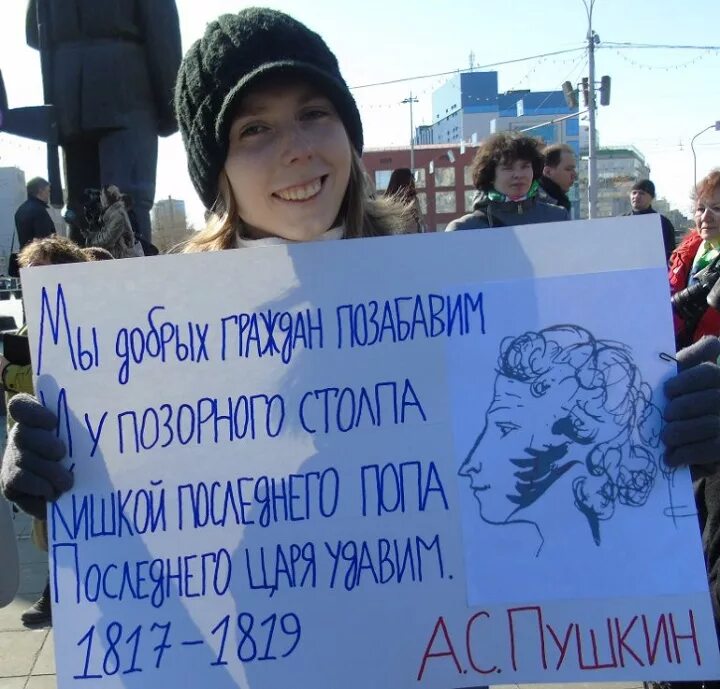 Мы добрых граждан позабавим
И у позорного столпа
Кишкой последнего попа
Последнего царя удавим.
1817-1819
А.С. Пушкин